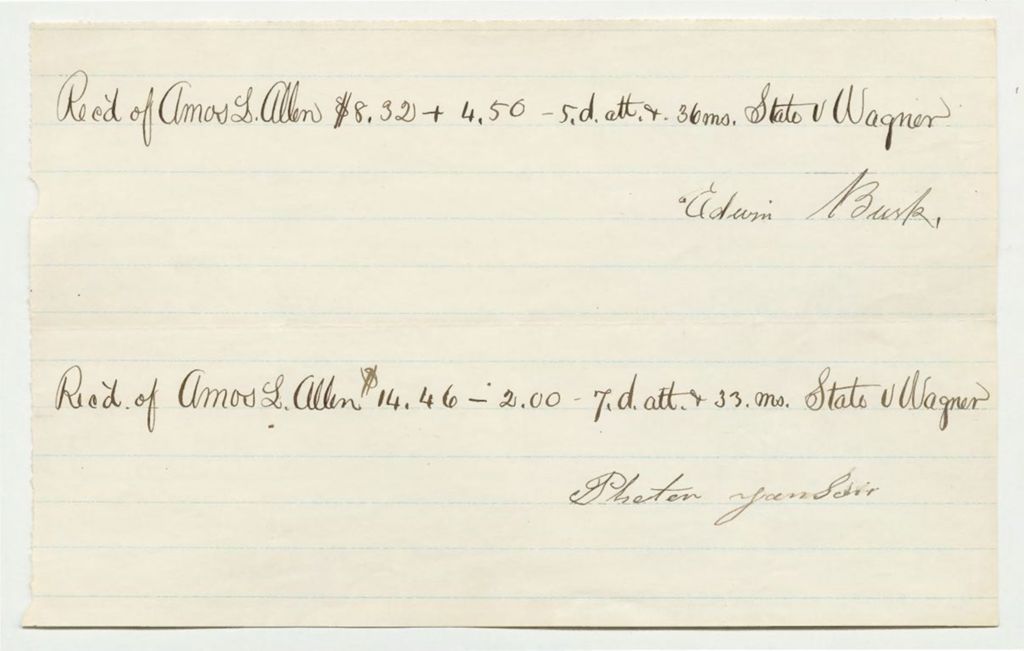 Rec'd of Amos L. Allen $8.32 + 4.50 - 5.d. att. & 36 ms. State v Wagner
Edwin Burk.
Rec'd. of Amos L. Allen $14.46 - 2.00 - 7.d. att. & 33. ms. State v Wagner